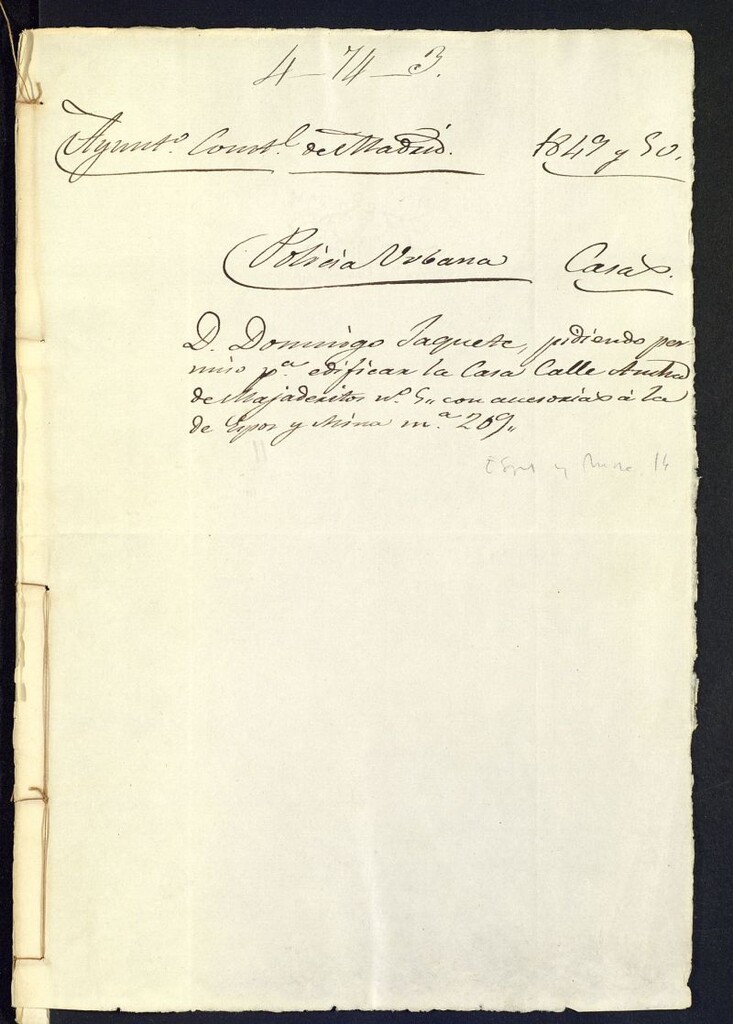 4-74-3.
Ayunto. Constl. de Madrid. 1849 y 50.
Policia Urbana Casas.
D. Domingo Jaquete, pidiendo per
miso pa. edificar la Casa Calle Ancha
de Majaderitos no. 5,, con accesorias á la
de Espoz y Mina ma. 209,,
Espoz y Mina. 14